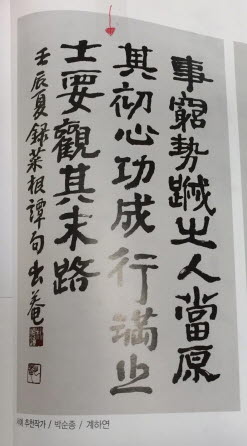 事窮勢蹙之人當原
其初心功成行滿之
士要觀其末路
壬辰夏錄菜根譚句出菴
추천작가 / 박순종 / 계하연